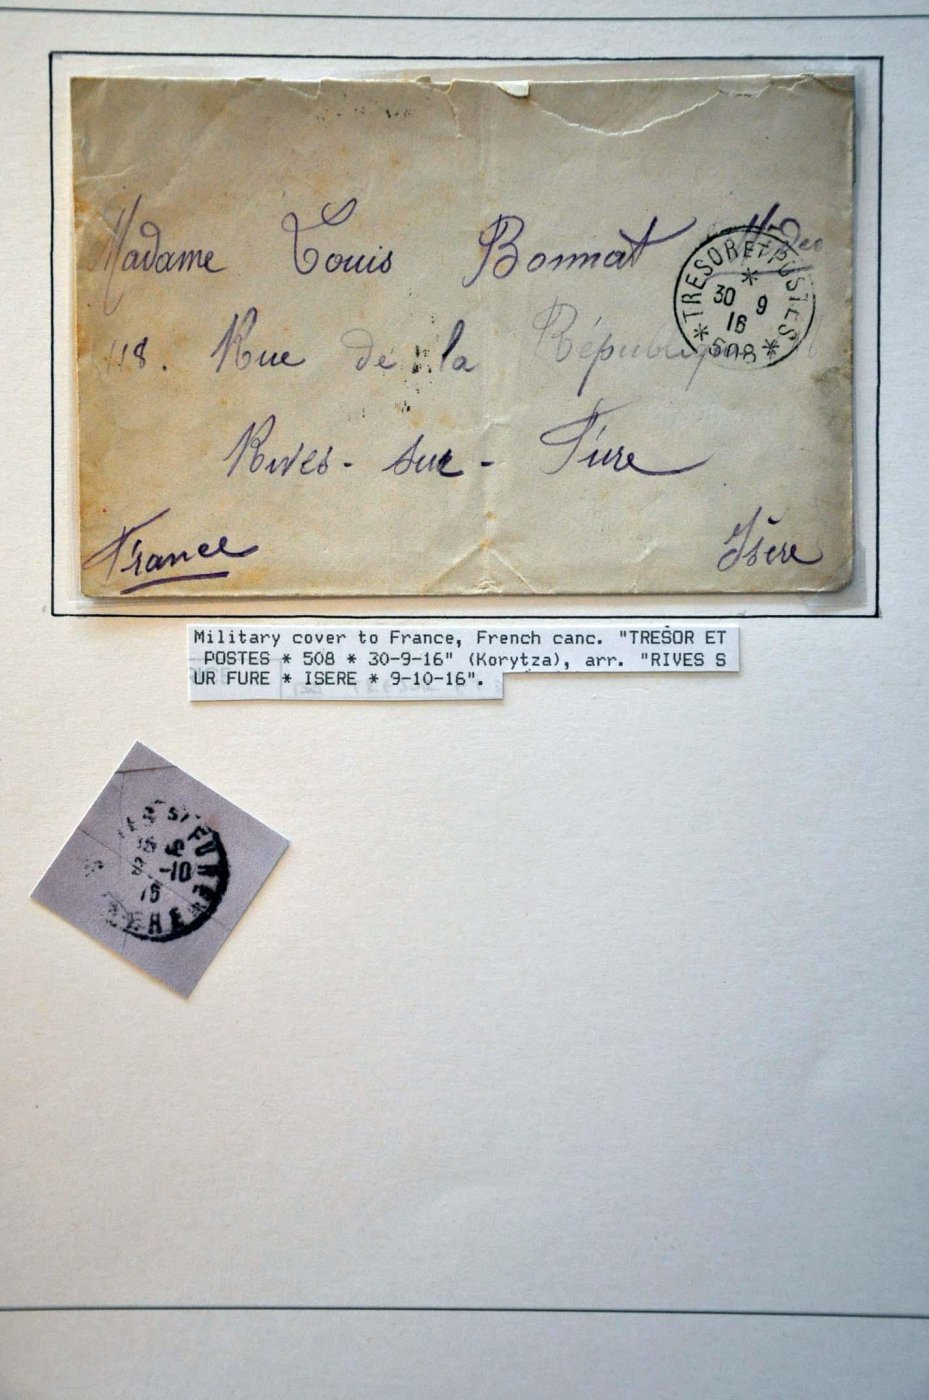 Madame Louis Bonnat
118. Rue de la République
Rives-sur-Fure
France
Isère
TRESOR ET POSTES
* 30 9 16 *
* 508 *
Military cover to France, French canc. "TRESOR ET
POSTES * 508 * 30-9-16" (Korytza), arr. "RIVES S
UR FURE * ISERE * 9-10-16".
S/ FURE
-10
16
ISERE *